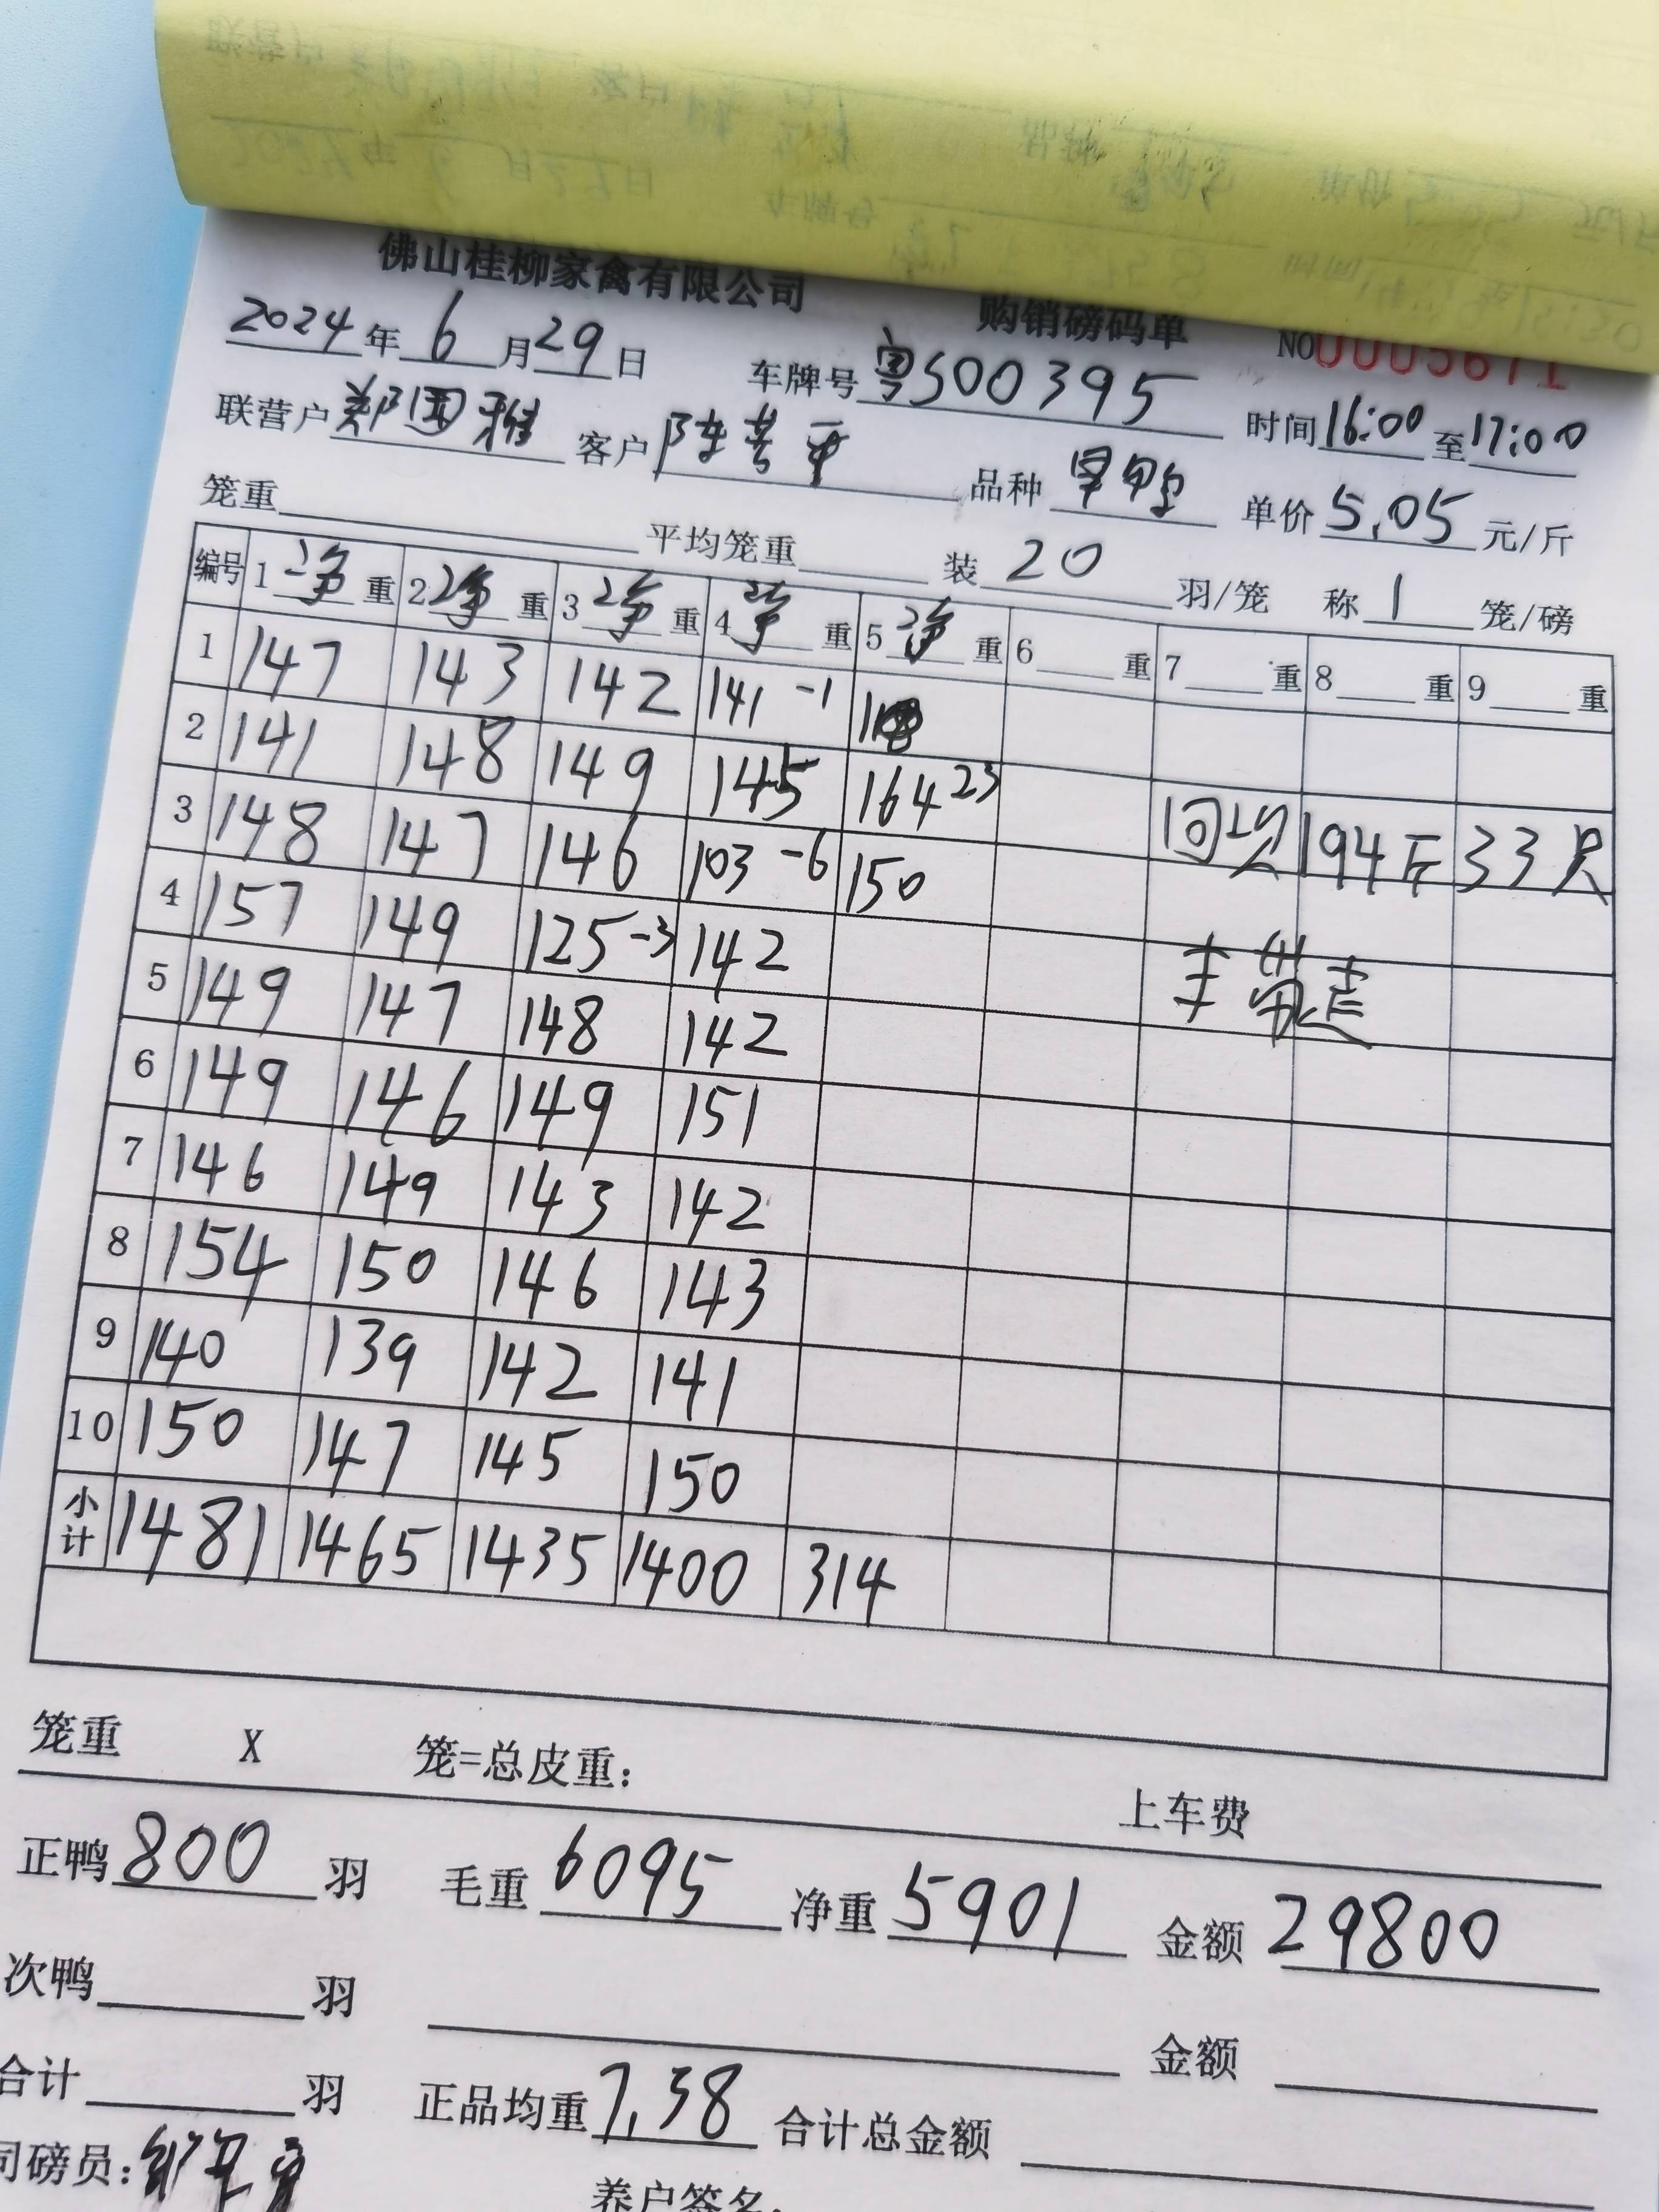 佛山桂柳家禽有限公司 购销磅码单 NO
2024年6月29日 车牌号 粤S00395 时间16:00至17:00
联营户 郑国雅 客户 陈 平 品种 旱鸭 单价 5.05 元/斤
笼重 平均笼重 装 20 羽/笼 称 1 笼/磅
编号 1净重 2净重 3净重 4净重 5净重 6 重 7 重 8 重 9 重
1 147 143 142 141 -1
2 141 148 149 145 164 23
3 148 147 146 103 -6 150 回 194斤 33只
4 157 149 125 -3 142
5 149 147 148 142
6 149 146 149 151
7 146 149 143 142
8 154 150 146 143
9 140 139 142 141
10 150 147 145 150
小计 1481 1465 1435 1400 314
笼重 X 笼=总皮重: 上车费
正鸭 800 羽 毛重 6095 净重 5901 金额 29800
次鸭 羽 金额
合计 羽 正品均重 7.38 合计总金额
司磅员:
养户签名: